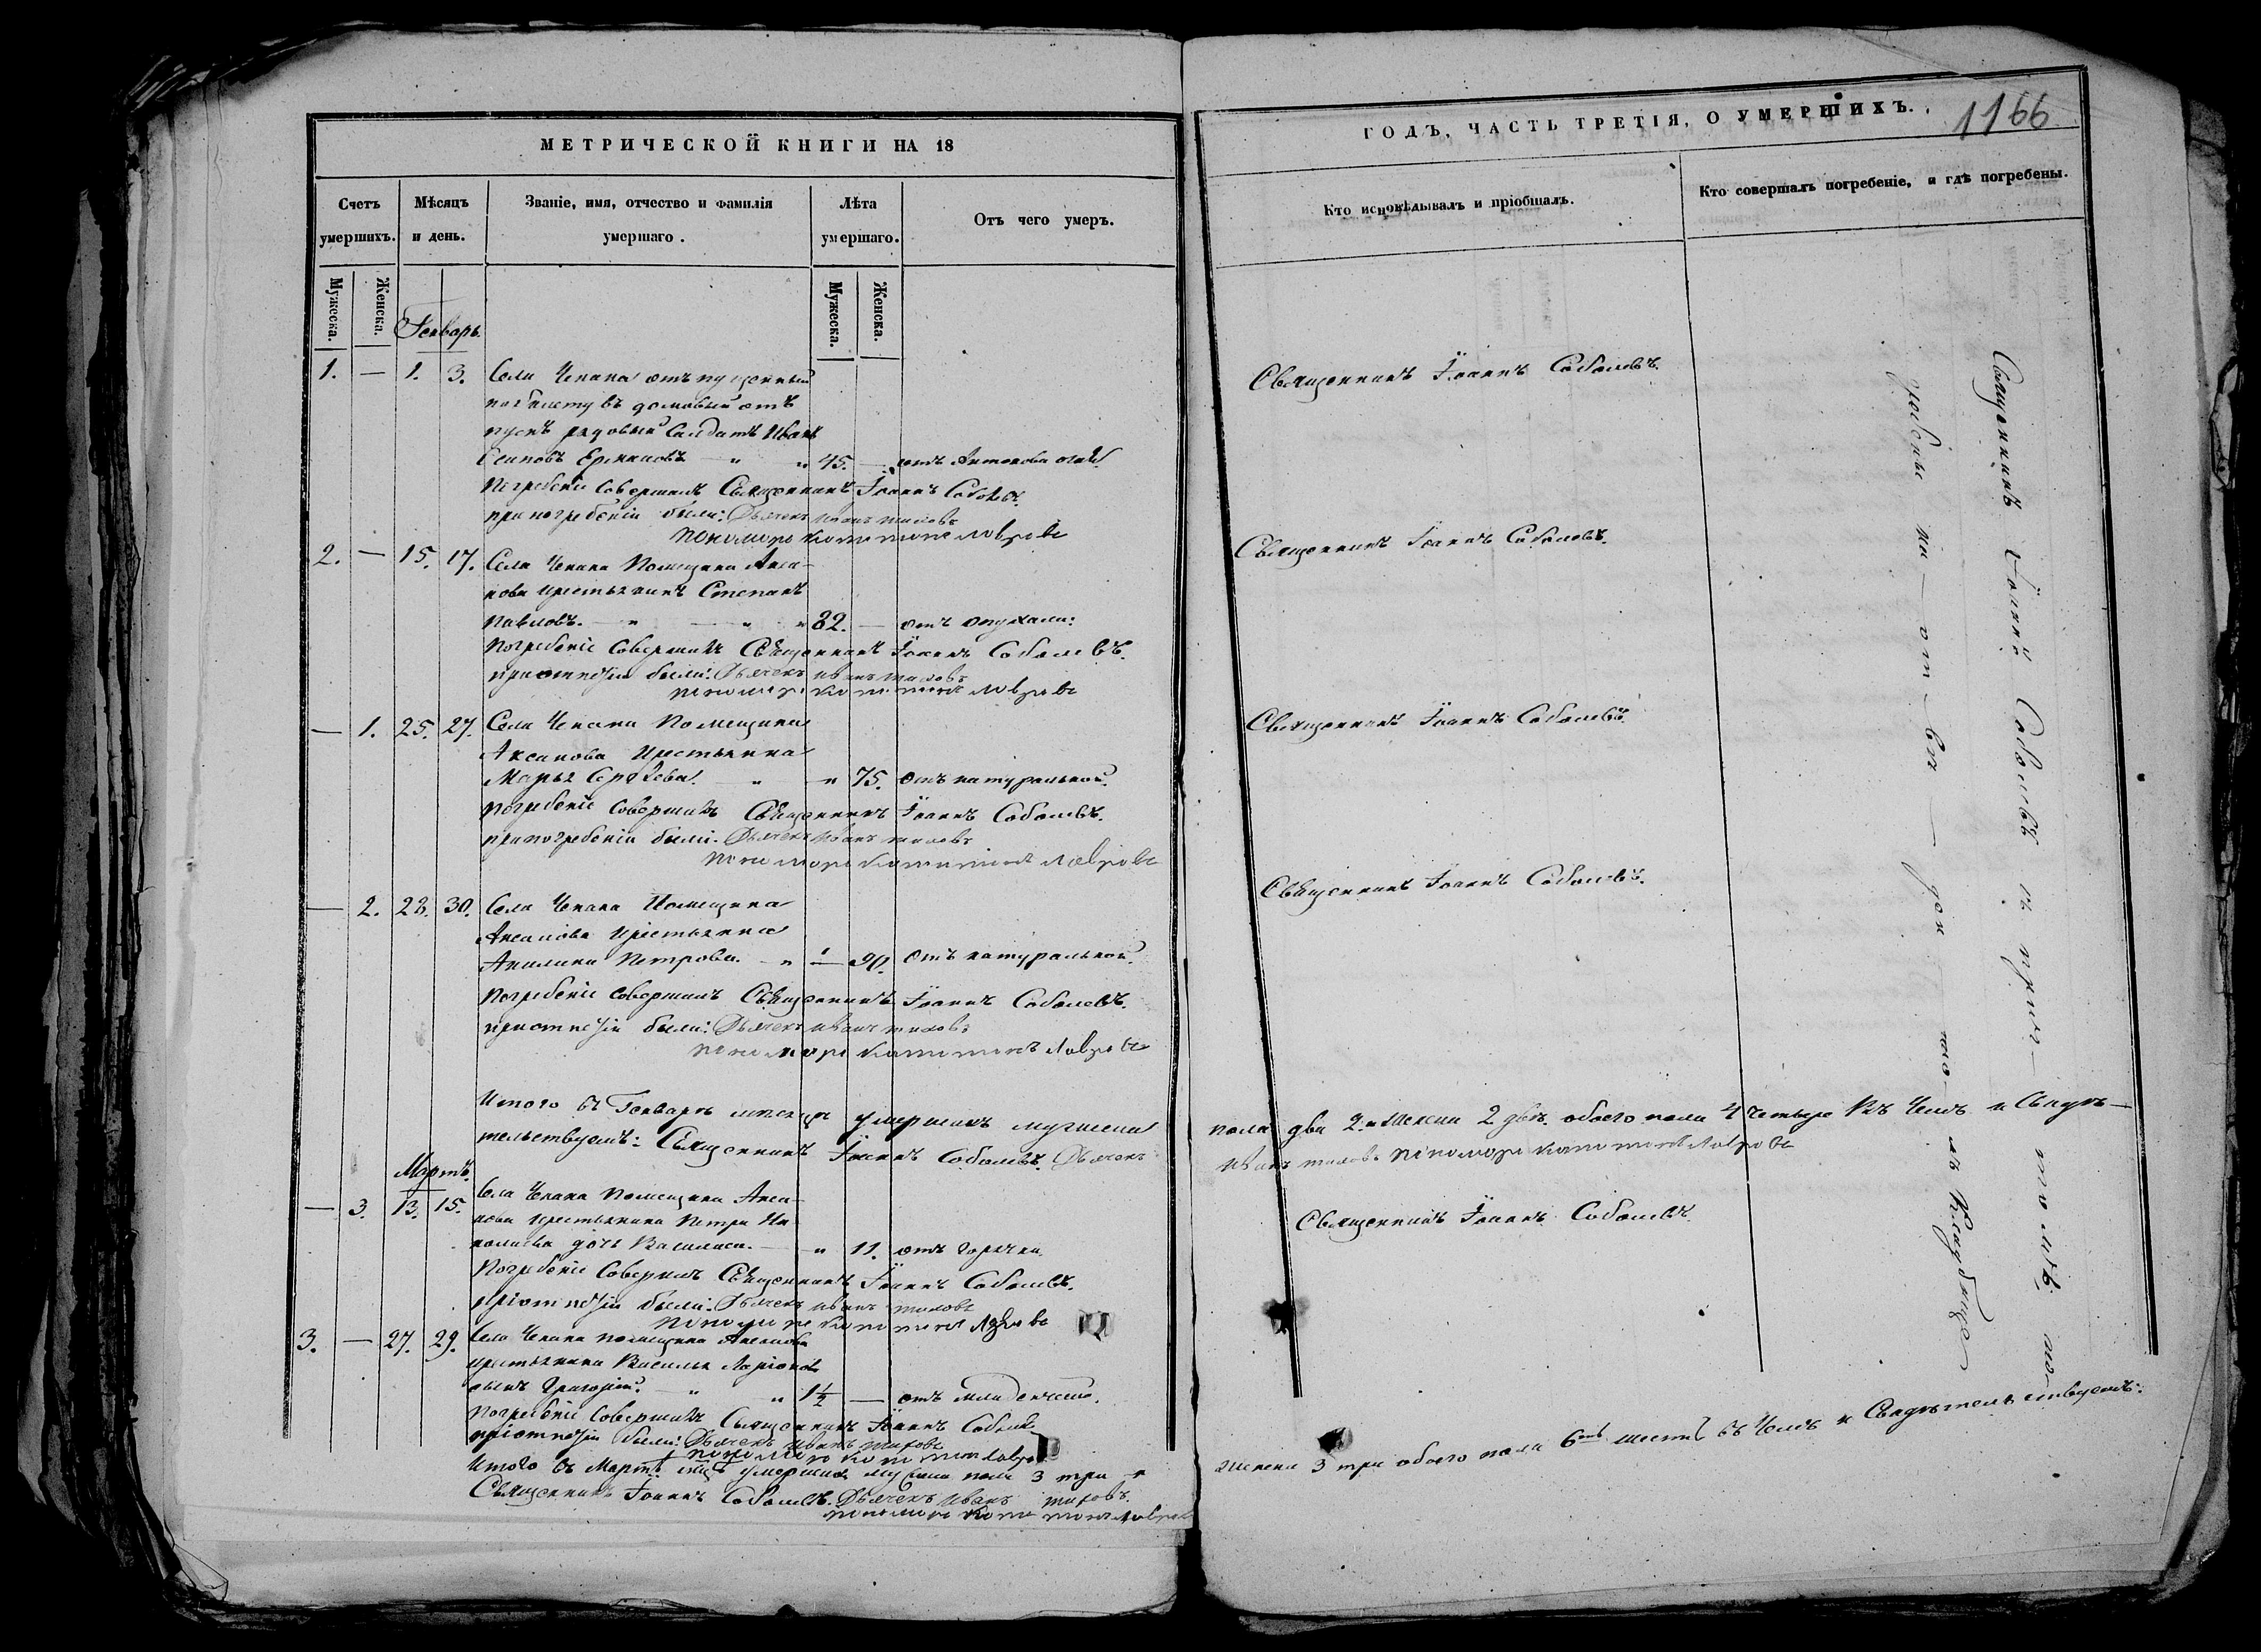 МЕТРИЧЕСКОЙ КНИГИ НА 18
Счетъ умершихъ.
Мѣсяцъ и день.
Званіе, имя, отчество и фамилія умершаго.
Лѣта умершаго.
Отъ чего умеръ.
Мужеска.
Женска.
Мужеска.
Женска.
Генварь
1. — 1. 3. Села Чекана отъпущенный
по билету въ домовый отъ
пускъ рядовый Солдатъ Иванъ
Осиповъ 45. — отъ Антонова огня
Погребеніе Совершалъ Священникъ Іоаннъ Соболевъ.
при погребеніи были: Дьячекъ Иванъ
пономарь Лавровъ
2. — 15. 17. Села Чекана Помещика Акса-
кова крестьянинъ Степанъ
Павловъ. 82. — отъ опухоли:
Погребеніе Совершалъ Священникъ Іоаннъ Соболевъ.
при отпетіи были: Дьячекъ Иванъ
пономарь Лавровъ
— 1. 25. 27. Села Чекана Помещика
Аксакова Крестьянка
Марья Сергѣева. 75. отъ натуральной.
Погребеніе Совершалъ Священникъ Іоаннъ Соболевъ.
при погребеніи были: Дьячекъ Иванъ
пономарь Лавровъ
— 2. 28. 30. Села Чекана Помещика
Аксакова Крестьянка
Акилина Петрова. — 90. отъ натуральной.
Погребеніе Совершалъ Священникъ Іоаннъ Соболевъ.
при отпетіи были: Дьячекъ Иванъ
пономарь Лавровъ
Итого въ Генварѣ месяцѣ умершихъ мужеска
тельствуемъ: Священникъ Іоаннъ Соболевъ. Дьячекъ
Мартъ.
— 3. 13. 15. Села Чекана Помещика Акса-
кова крестьянина Петра Ни-
колаева дочь Василиса. 11. отъ горячки
Погребеніе Совершалъ Священникъ Іоаннъ Соболевъ.
при отпетіи были: Дьячекъ Иванъ
пономарь Лавровъ
3. — 27. 29. Села Чекана помещика Аксакова
крестьянина Василья Ларіонова
сынъ Григорій. 1½ — отъ младенческой.
Погребеніе Совершалъ Священникъ Іоаннъ Соболевъ
при отпетіи были: Дьячекъ Иванъ
пономарь Лавровъ
Итого въ Мартѣ умершихъ мужеска пола 3 три и
Священникъ Іоаннъ Соболевъ. Дьячекъ Иванъ
пономарь Лавровъ
ГОДЪ, ЧАСТЬ ТРЕТІЯ, О УМЕРШИХЪ.
1166
Кто исповѣдывалъ и пріобщалъ.
Кто совершалъ погребеніе, и гдѣ погребены.
Священникъ Іоаннъ Соболевъ.
Священникъ Іоаннъ Соболевъ.
Священникъ Іоаннъ Соболевъ.
Священникъ Іоаннъ Соболевъ.
пола два 2. и Женска 2 двѣ. обоего пола 4 четыре Въ чемъ и Свидѣ-
Иванъ пономарь Лавровъ
Священникъ Іоаннъ Соболевъ
Женска 3 три обоего пола 6ть шесть въ чемъ и Свидѣтельствуемъ:
Священникъ Іоаннъ Соболевъ съ причтомъ
погребены на отведенномъ Кладбище